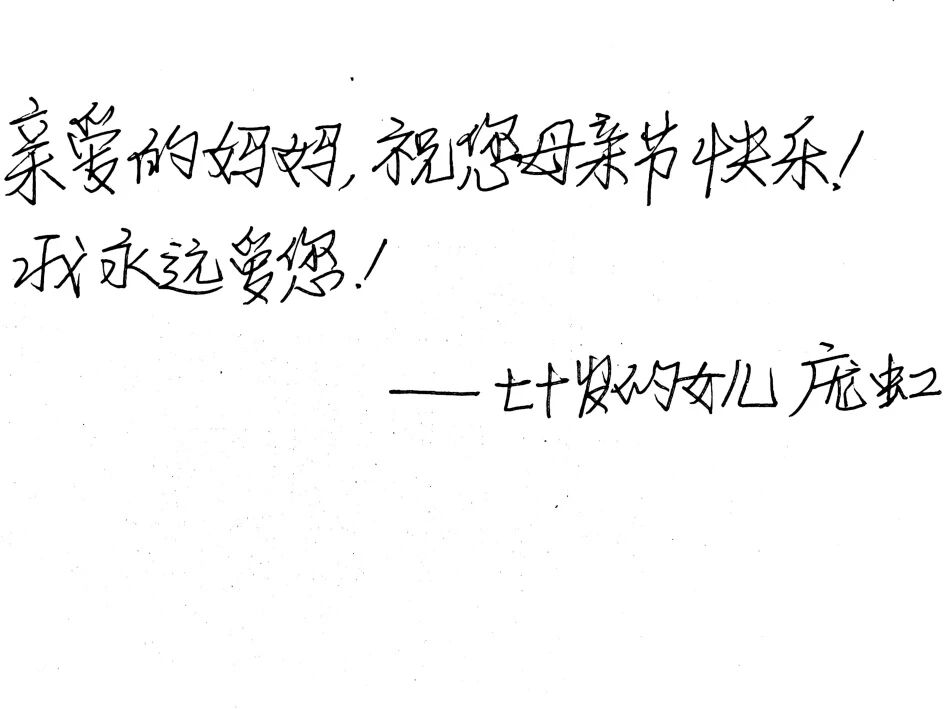 亲爱的妈妈,祝您母亲节快乐!
我永远爱您!
——七十岁的女儿 庞虹